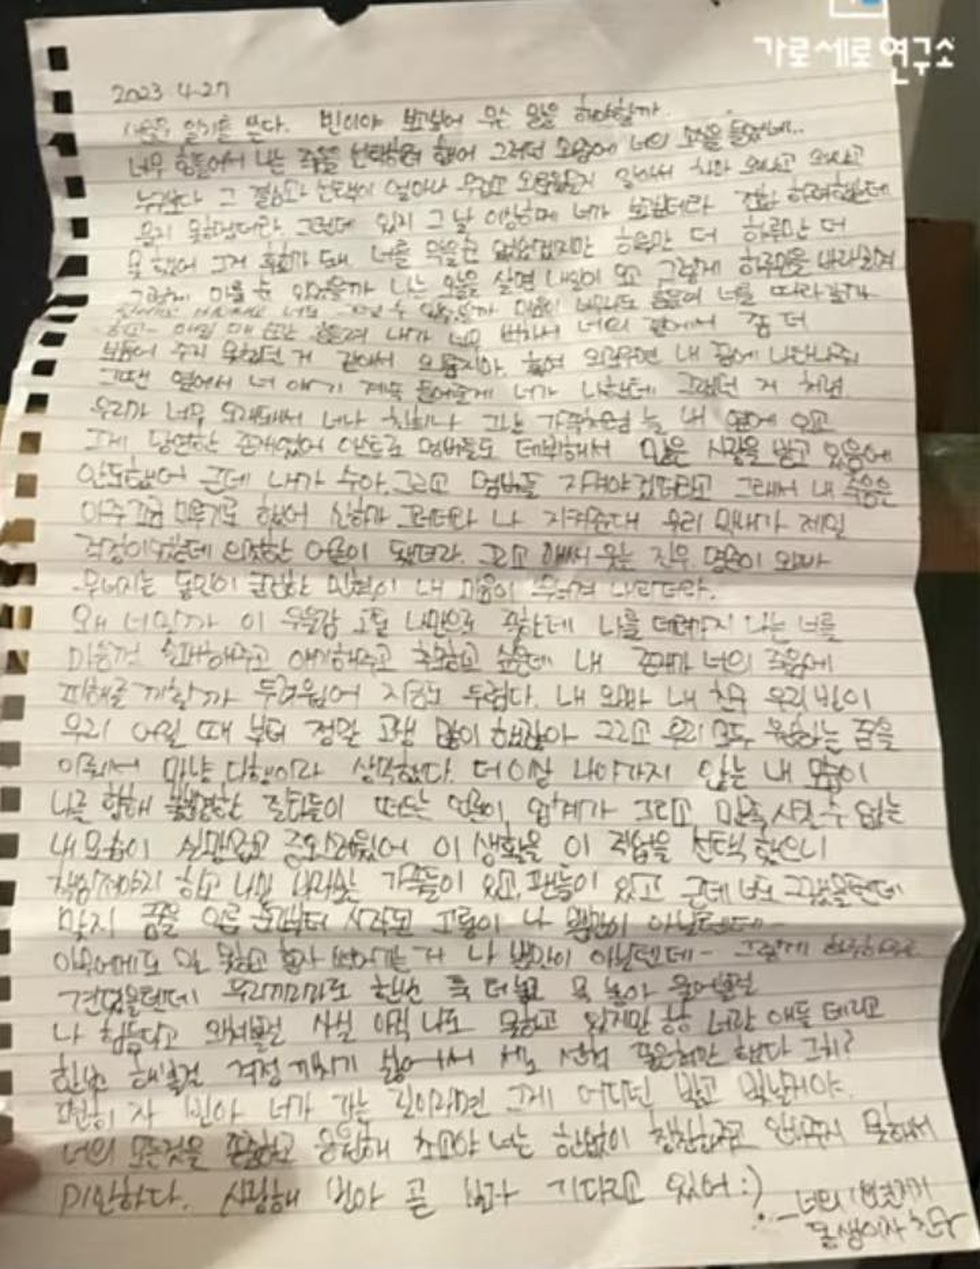 가로세로연구소
2023 4.27
일기를 쓴다. 빈이야 보고싶어 무슨 말을 해야할까.
너무 힘들어서 나는 죽음을 선택하려 했어 그러던 와중에 너의 소식을 들었네..
누구보다 그 결심과 선택이 얼마나 무섭고 외로웠을지 알아서
울지 못하겠더라. 그런데 있지 그날 이상하게 너가 보고싶더라 전화 하려했는데
못했어 그게 후회가 돼. 너를 막을 순 없었겠지만 하루만 더 하루만 더
그렇게 미룰 순 있었을까 나는 오늘을 살면 내일이 오고 그렇게 하루만을 버텨
내가 너무 벅차서 너의 곁에서 좀 더
보듬어 주지 못했던 거 같아서 외롭지마. 혹여 외로우면 내 꿈에 나타나줘
그땐 옆에서 너 얘기 계속 들어줄게 너가 나한테 그랬던 거 처럼
우리가 너무 오래돼서 너나 친희나 그냥 가족처럼 늘 내 옆에 있고
그게 당연한 존재였어 연습생 멤버들도 데뷔해서 많은 사랑을 받고 있음에
안도했어 근데 내가 수아, 그리고 멤버들 지켜야겠더라고 그래서 내 죽음은
아주 조금 미루기로 했어 산하가 그러더라 나 지켜준대 우리 막내가 제일
걱정이었는데 의젓한 어른이 됐더라. 그리고 애써 웃는 진우, 명준이 오빠
무너지는 동민이 묵묵한 민혁이 내 마음이 무너져 내리더라.
왜 너일까 이 우울감 고통 나만으로 족한데 나를 데려가지 나는 너를
마음껏 슬퍼해주고 얘기해주고 추모하고 싶은데 내 존재가 너의 죽음에
피해를 끼칠까 두려웠어 지금도 두렵다. 내 오빠 내 친구 우리 빈이
우리 어릴 때 부터 정말 고생 많이 했잖아 그리고 우리 모두 원하는 꿈을
이뤄서 마냥 다행이라 생각했다. 더 이상 나아가지 않는 내 모습이
나를 향해 불분명한 질타들이 떠드는 언론이 업계가 그리고 만족시킬 수 없는
내 모습이 실망스럽고 증오스러웠어 이 생활을 이 직업을 선택했으니
책임져야지 하고 나만 바라보는 가족들이 있고, 팬들이 있고 근데 너도 그랬을텐데
맞지 꿈을 이룬 순간부터 시작된 고통이 나 뿐만이 아닐텐데-
아무에게도 말 못하고 혼자 썩어가는 거 나 뿐만이 아닐텐데- 그렇게 하루하루
견뎠을텐데 우리끼리라도 한번 툭 터놓고 목 놓아 울어볼걸
나 힘들다고 외쳐볼걸 사실 아직 나도 못하고 있지만 난 너랑 애들 데리고
한번 해볼걸 걱정 끼치기 싫어서 서로 선택 같은 걸 했다 그치?
편히 자 빈아 너가 가는 길이라면 그게 어디던 밝고 빛날거야.
너의 모든것을 존중하고 응원해 최고야 너는 한없이 칭찬해주고 안아주지 못해서
미안하다. 사랑해 빈아 곧 보자 기다리고 있어 :)
-너의
동생이자 친구